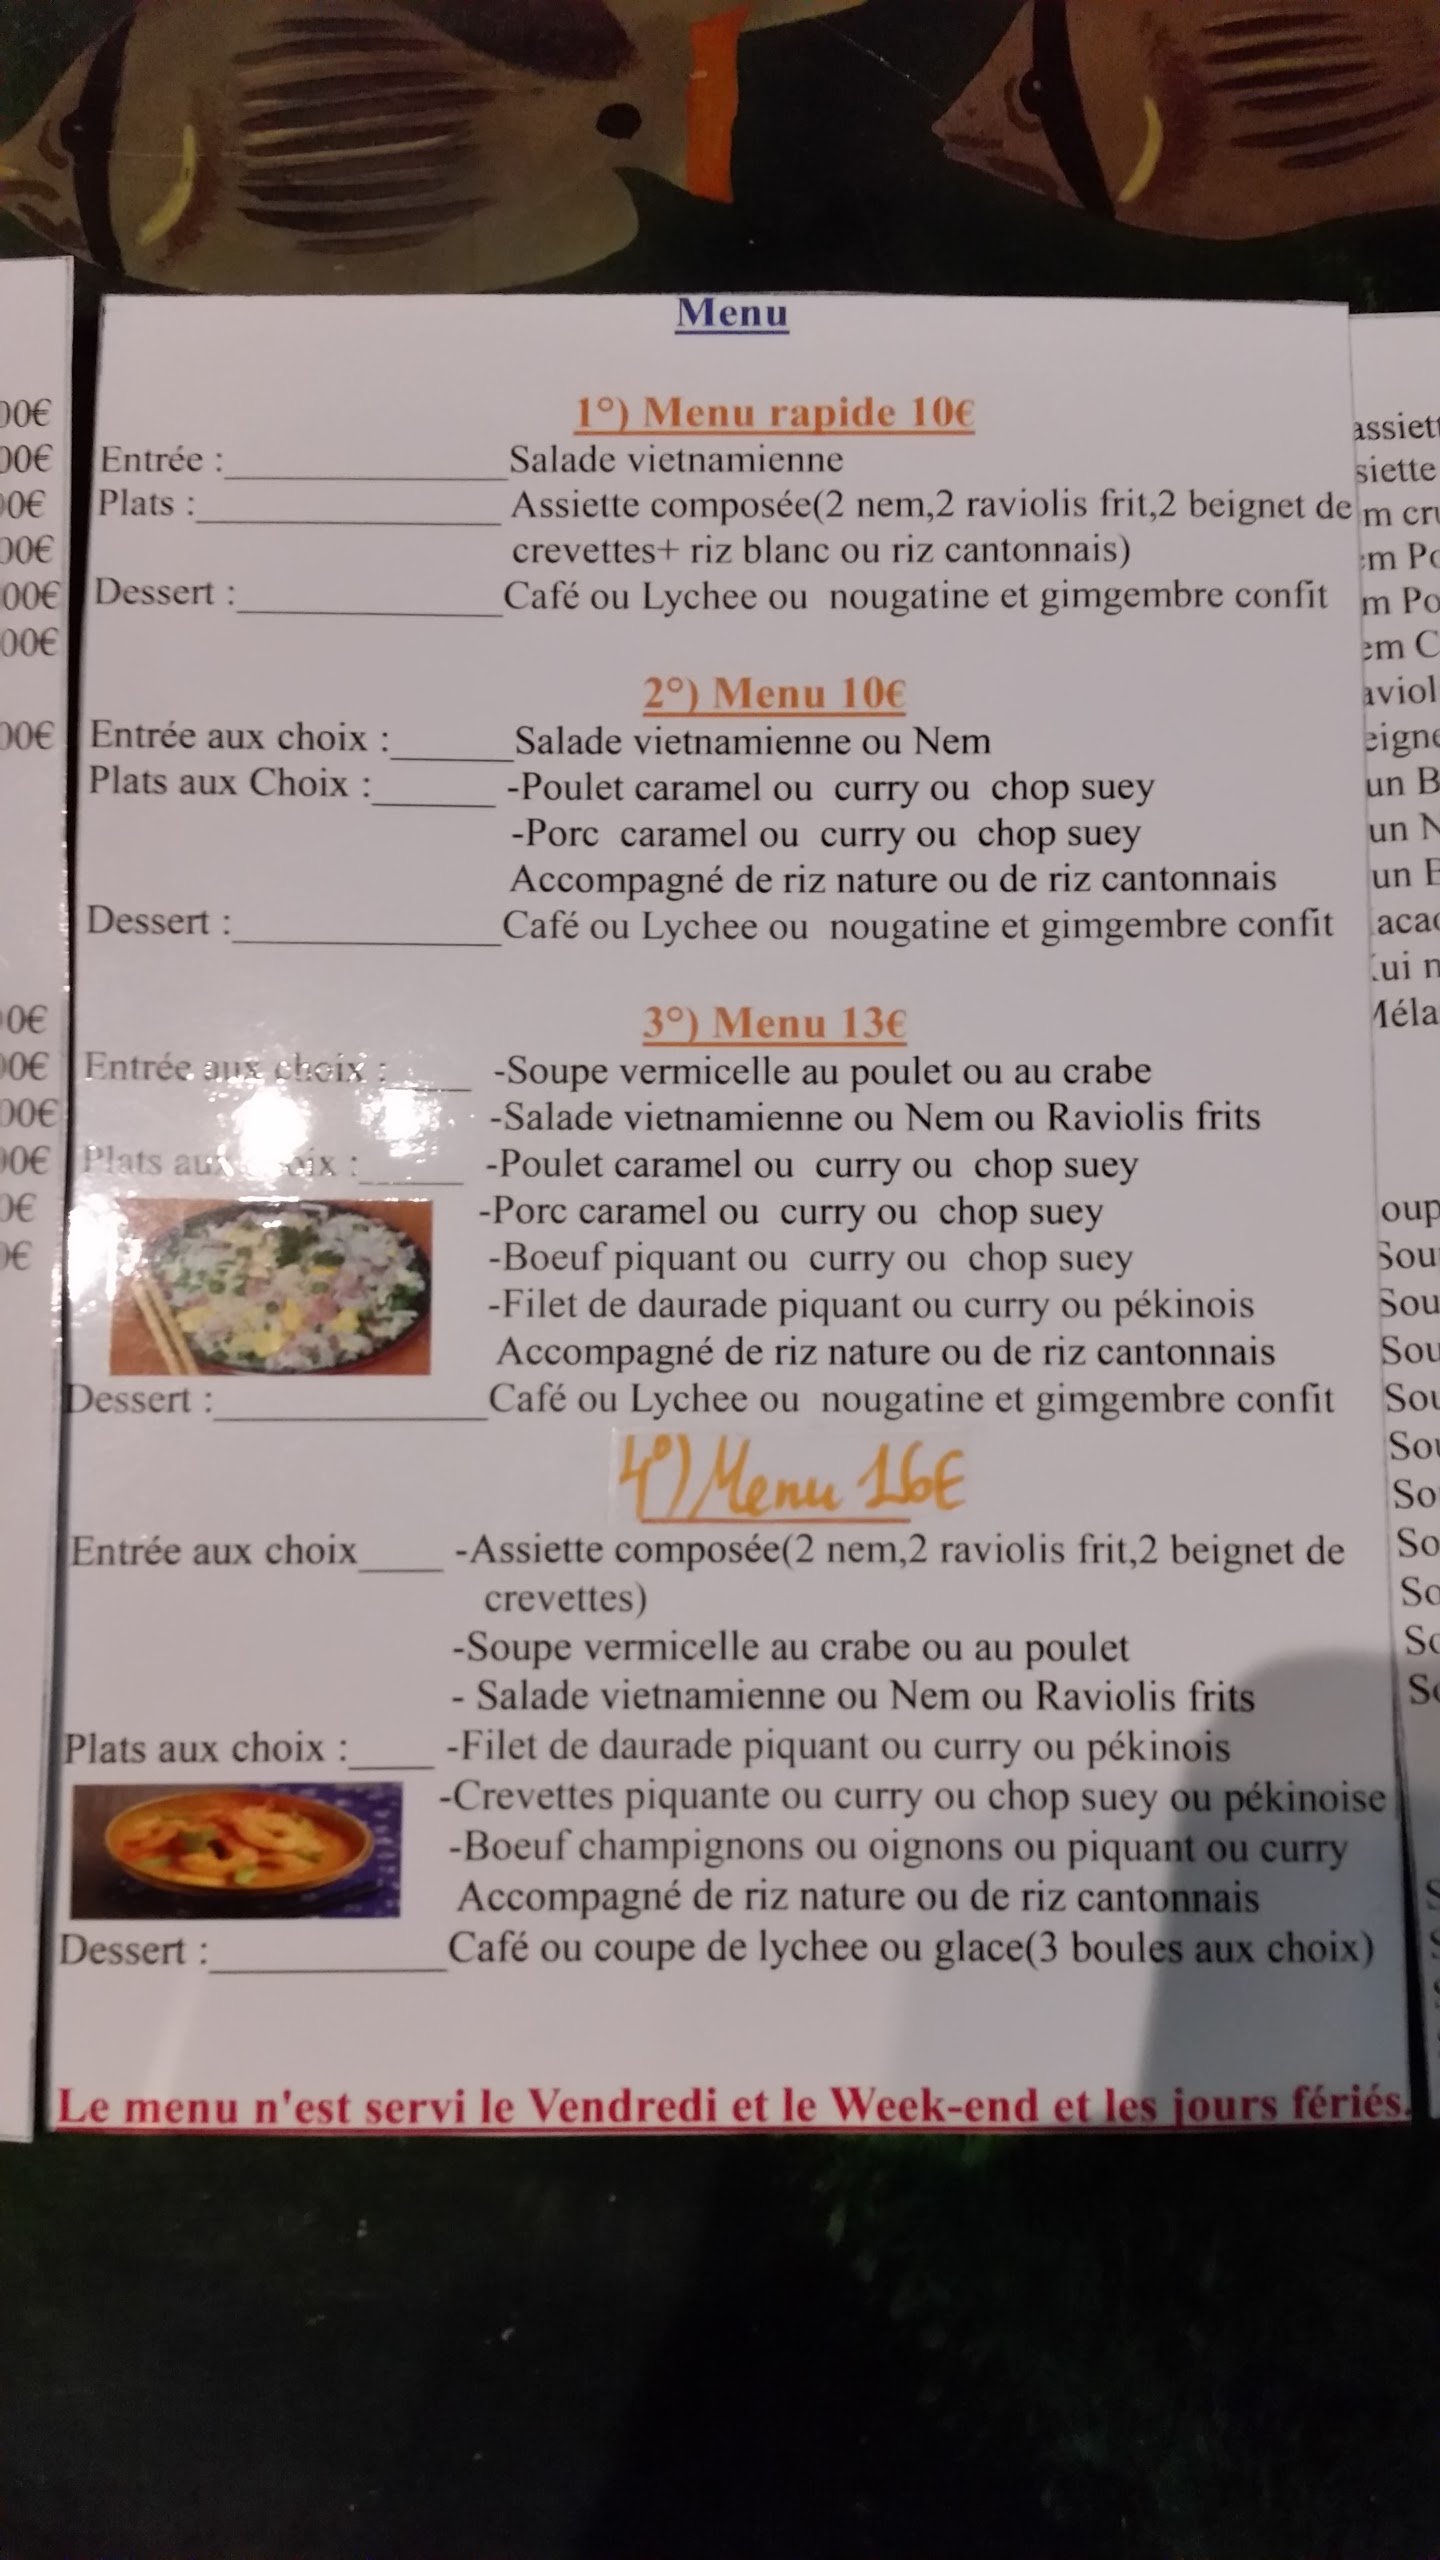 Menu
1°) Menu rapide 10€
Entrée :____________Salade vietnamienne
Plats :_____________ Assiette composée(2 nem,2 raviolis frit,2 beignet de
crevettes+ riz blanc ou riz cantonnais)
Dessert :___________Café ou Lychee ou nougatine et gimgembre confit
2°) Menu 10€
Entrée aux choix :_____Salade vietnamienne ou Nem
Plats aux Choix :_____ -Poulet caramel ou curry ou chop suey
-Porc caramel ou curry ou chop suey
Accompagné de riz nature ou de riz cantonnais
Dessert :___________Café ou Lychee ou nougatine et gimgembre confit
3°) Menu 13€
Entrée aux choix :____ -Soupe vermicelle au poulet ou au crabe
-Salade vietnamienne ou Nem ou Raviolis frits
Plats aux choix :____ -Poulet caramel ou curry ou chop suey
-Porc caramel ou curry ou chop suey
-Boeuf piquant ou curry ou chop suey
-Filet de daurade piquant ou curry ou pékinois
Accompagné de riz nature ou de riz cantonnais
Dessert :___________Café ou Lychee ou nougatine et gimgembre confit
4°) Menu 16€
Entrée aux choix____ -Assiette composée(2 nem,2 raviolis frit,2 beignet de
crevettes)
-Soupe vermicelle au crabe ou au poulet
- Salade vietnamienne ou Nem ou Raviolis frits
Plats aux choix :____ -Filet de daurade piquant ou curry ou pékinois
-Crevettes piquante ou curry ou chop suey ou pékinoise
-Boeuf champignons ou oignons ou piquant ou curry
Accompagné de riz nature ou de riz cantonnais
Dessert :__________Café ou coupe de lychee ou glace(3 boules aux choix)
Le menu n'est servi le Vendredi et le Week-end et les jours fériés.